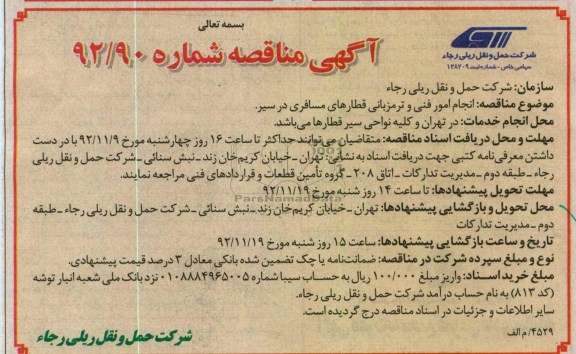 بسمه تعالی
آگهی مناقصه شماره ۹۲/۹۰
شرکت حمل و نقل ریلی رجاء
سهامی خاص - شماره ثبت ۱۲۸۲۰۹
سازمان: شرکت حمل و نقل ریلی رجاء
موضوع مناقصه: انجام امور فنی و ترمزبانی قطارهای مسافری در سیر.
محل انجام خدمات: در تهران و کلیه نواحی سیر قطارها می‌باشد.
مهلت و محل دریافت اسناد مناقصه: متقاضیان می‌توانند حداکثر تا ساعت ۱۶ روز چهارشنبه مورخ ۹۲/۱۱/۹ با در دست
داشتن معرفی‌نامه کتبی جهت دریافت اسناد به نشانی: تهران - خیابان کریم‌خان زند - نبش سنائی - شرکت حمل و نقل ریلی
رجاء - طبقه دوم - مدیریت تدارکات - اتاق ۲۰۸ - گروه تأمین قطعات و قراردادهای فنی مراجعه نمایند.
مهلت تحویل پیشنهادها: تا ساعت ۱۴ روز شنبه مورخ ۹۲/۱۱/۱۹
ParsNamadData
محل تحویل و بازگشایی پیشنهادها: تهران - خیابان کریم‌خان زند - نبش سنائی - شرکت حمل و نقل ریلی رجاء - طبقه
دوم - مدیریت تدارکات
تاریخ و ساعت بازگشایی پیشنهادها: ساعت ۱۵ روز شنبه مورخ ۹۲/۱۱/۱۹
نوع و مبلغ سپرده شرکت در مناقصه: ضمانت‌نامه یا چک تضمین شده بانکی معادل ۳ درصد قیمت پیشنهادی.
مبلغ خرید اسناد: واریز مبلغ ۱۰۰/۰۰۰ ریال به حساب سیبا شماره ۰۱۰۸۸۸۴۹۶۵۰۰۵ نزد بانک ملی شعبه انبار توشه
(کد ۸۱۳) به نام حساب درآمد شرکت حمل و نقل ریلی رجاء.
سایر اطلاعات و جزئیات در اسناد مناقصه درج گردیده است.
۴۵۲۹/م الف
شرکت حمل و نقل ریلی رجاء